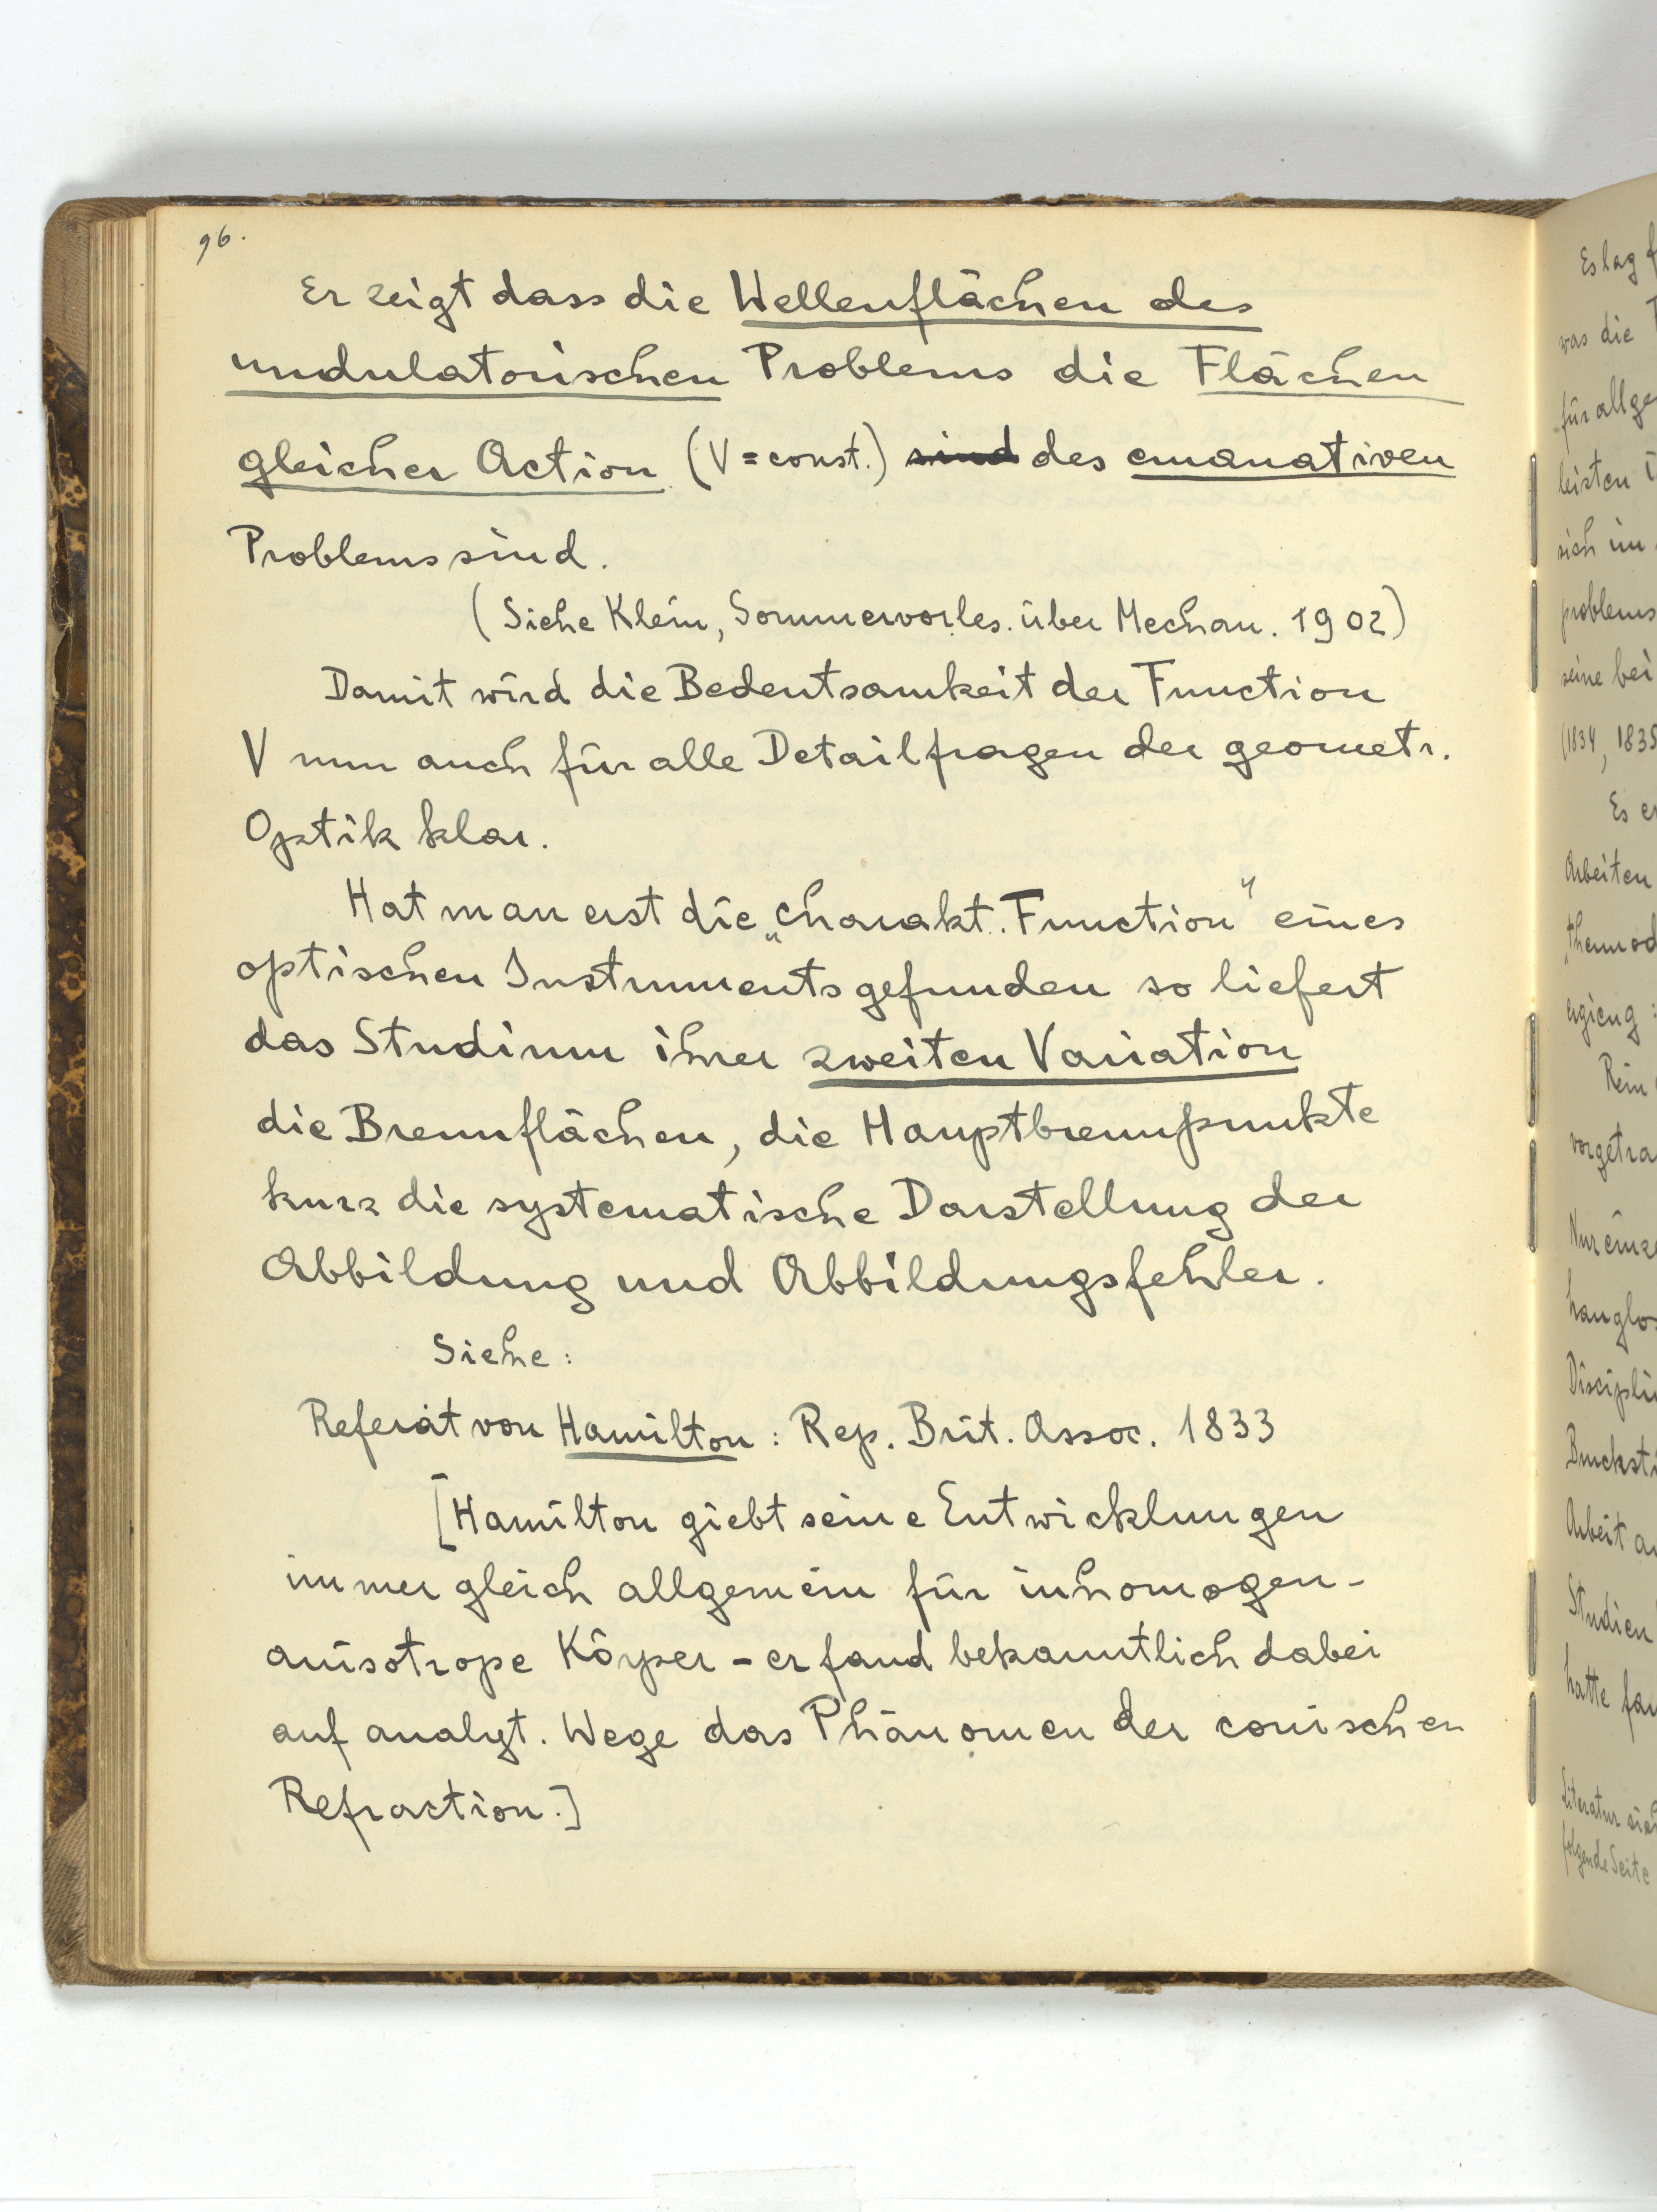 96.
Er zeigt dass die Wellenflächen des
undulatorischen Problems die Flächen
gleicher Action (V = const.) sind des emanativen
Problems sind.
(Siehe Klein, Sommervorles. über Mechan. 1902)
Damit wird die Bedeutsamkeit der Function
V nun auch für alle Detailfragen der geometr.
Optik klar.
Hat man erst die „charakt. Function" eines
optischen Instruments gefunden so liefert
das Studium ihrer zweiten Variation
die Brennflächen, die Hauptbrennpunkte
kurz die systematische Darstellung der
Abbildung und Abbildungsfehler.
Siehe:
Referat von Hamilton: Rep. Brit. Assoc. 1833
[Hamilton giebt seine Entwicklungen
immer gleich allgemein für inhomogen-
anisotrope Körper – er fand bekanntlich dabei
auf analyt. Wege das Phänomen der conischen
Refraction.]
Es lag
was die
für allge
leisten
sich im
problems
seine bei
(1834, 1835
Es
Arbeiten
ergieng
Rein
vorgetra
hanglos
Disciplin
Bruchst
Arbeit
Studien
hatte
Literatur
folgende Seite